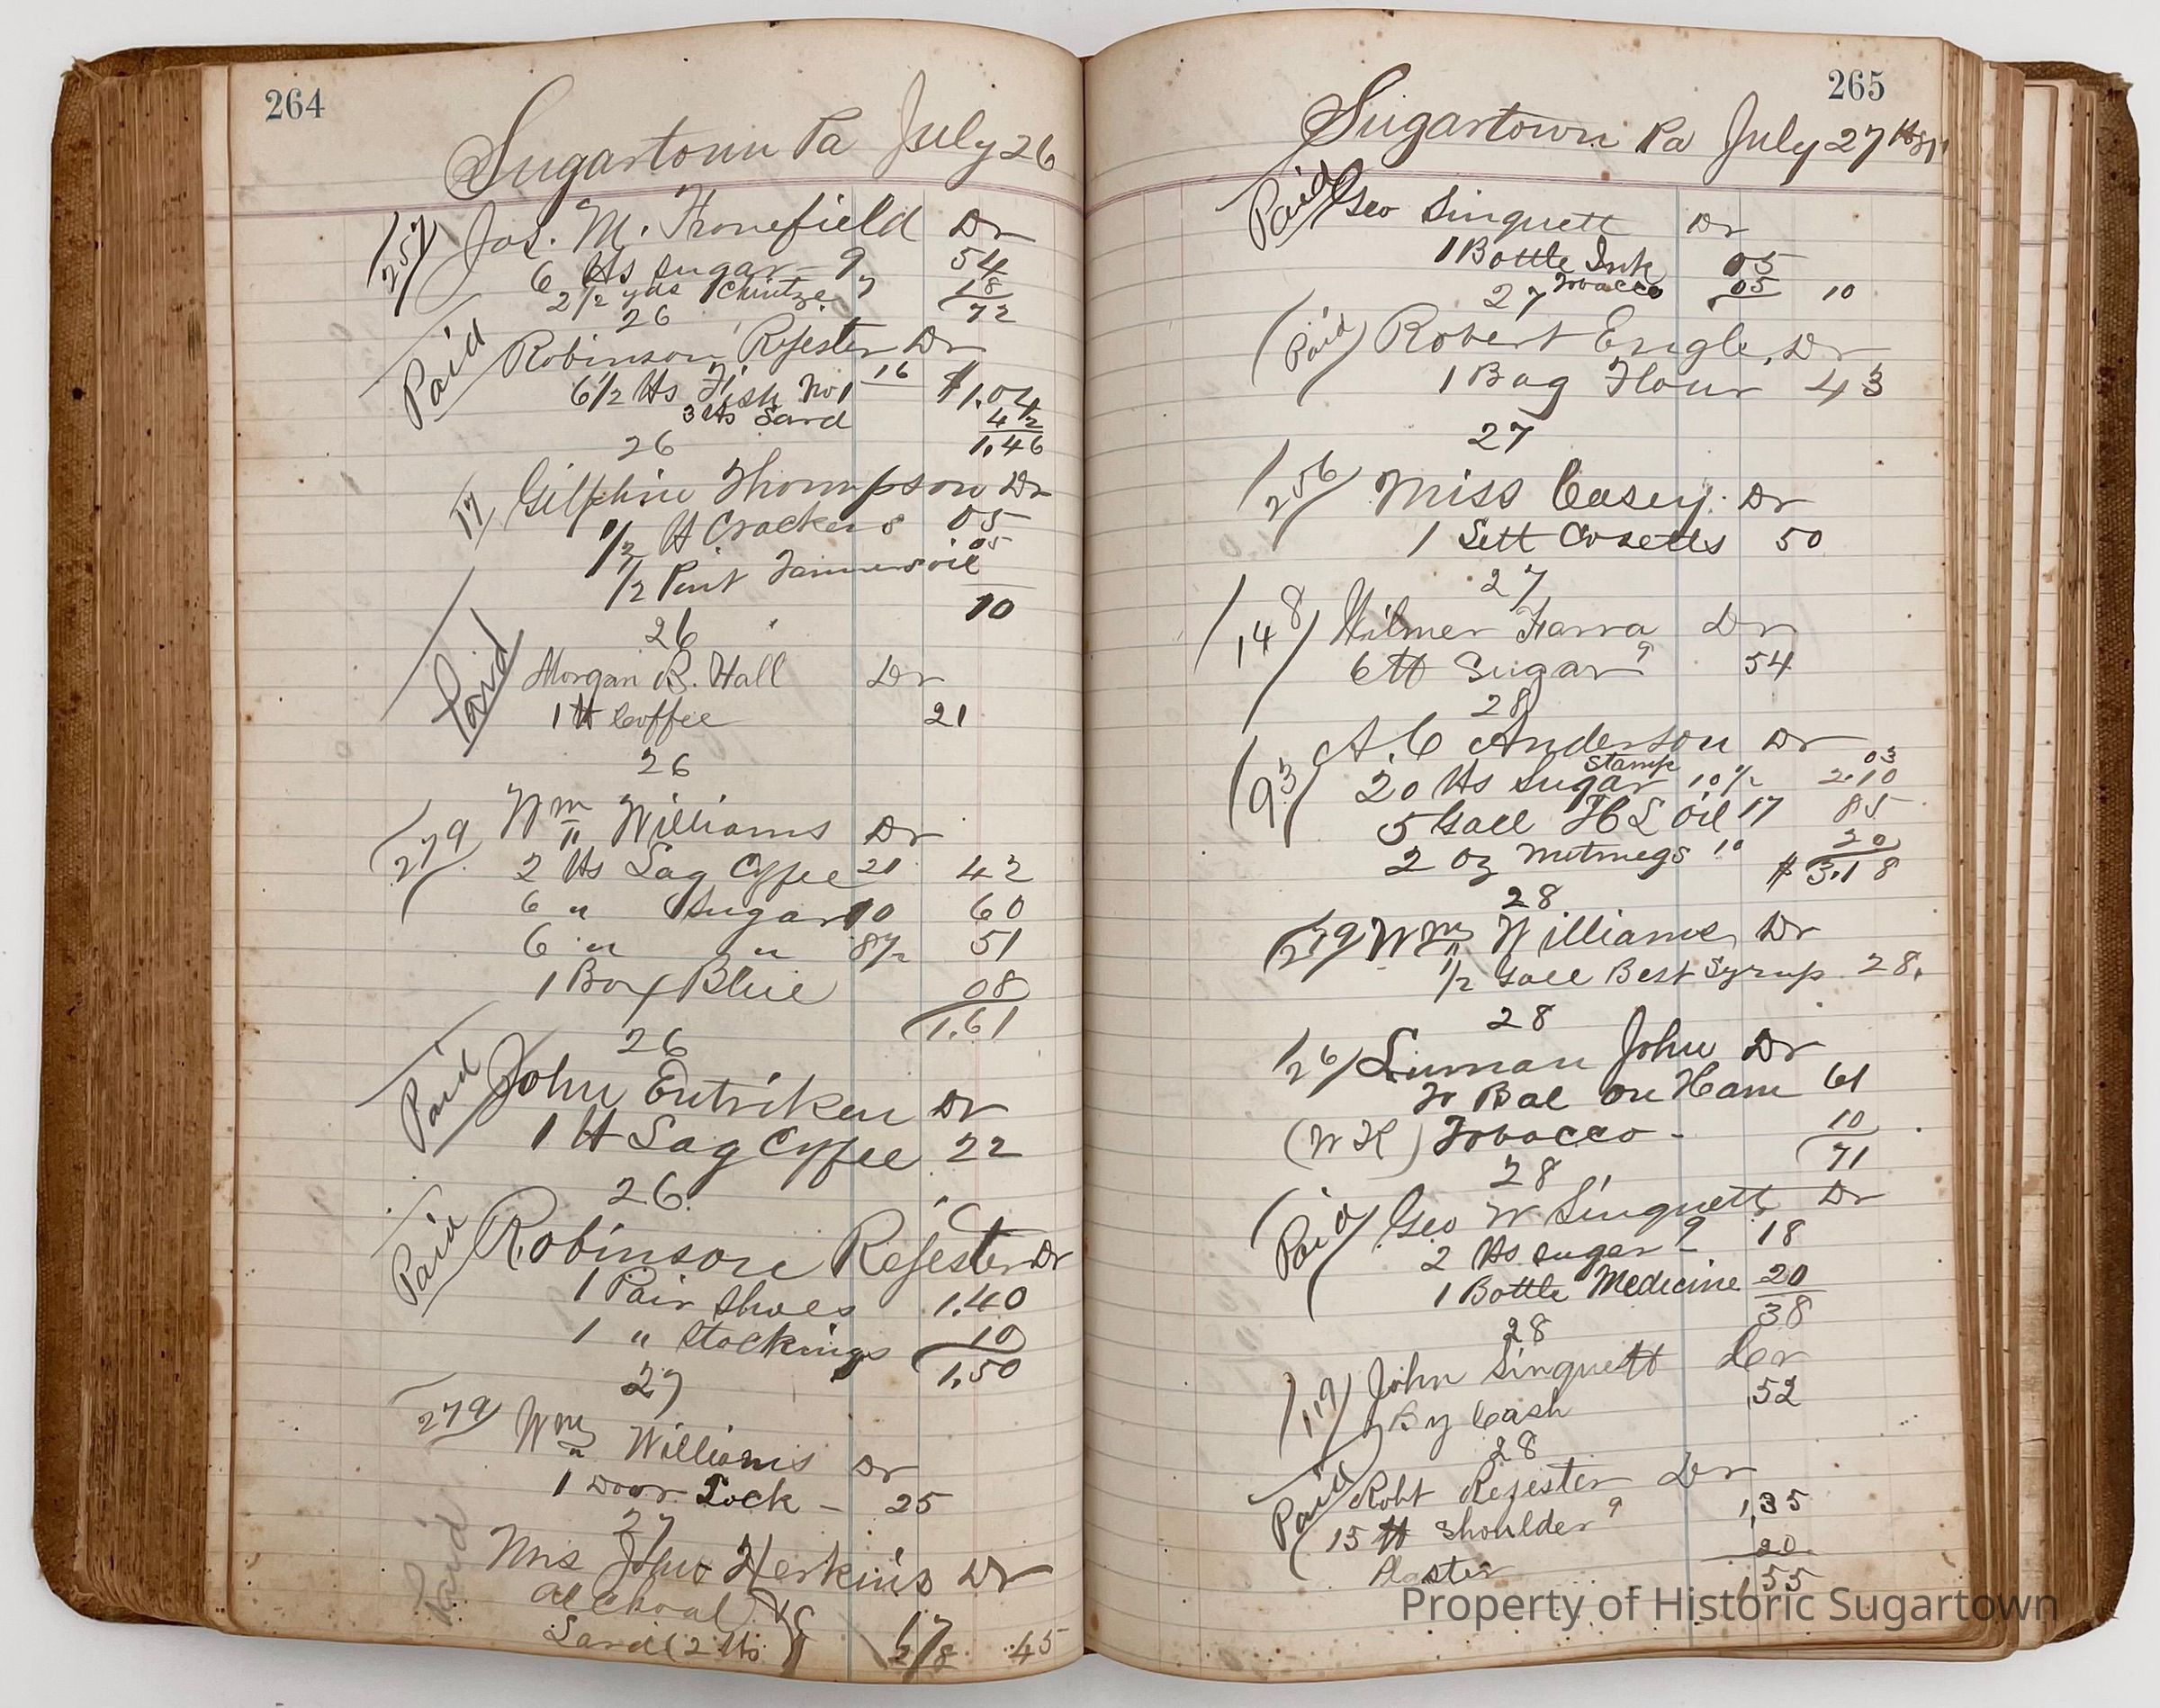 264
Sugartown Pa July 26
257 Jos. M. Fronefield Dr
6 lbs Sugar 9 54
2 1/2 yds Chintze 7 18
72
26
Paid Robinson Rejester Dr
6 1/2 lbs Fish No 1 16 $1.04
3 lbs Lard 42
1.46
26
17 Gilphin Thompson Dr
1/2 lb Crackers 05
1/2 Pint Tanners oil 05
10
26
Paid Morgan R. Hall Dr
1 lb Coffee 21
26
279 Wm Williams Dr
2 lbs Lag Coffee 21 42
6 " Sugar 10 60
6 " " 8 1/2 51
1 Box Blue 08
1.61
26
Paid John Entriken Dr
1 lb Lag Coffee 22
26
Paid Robinson Rejester Dr
1 Pair Shoes 1.40
1 " Stockings 10
1.50
27
279 Wm Williams Dr
1 Door Lock - 25
27
Paid Mrs John Herkins Dr
Alchoal 17
Lard (2 lbs) 28 45
265
Sugartown Pa July 27
Paid Geo Sinquett Dr
1 Bottle Ink 05
Tobacco 05 10
27
Paid Robert Engle, Dr
1 Bag Flour 43
27
256 Miss Casey. Dr
1 Sett Cosetts 50
27
148 Wilmer Farra Dr
6 lb Sugar 9 54
28
93 A. C Anderson Dr
Stamp 03
20 lbs Sugar 10 1/2 2.10
5 Gall H L Oil 17 85
2 oz Nutmegs 10 20
$ 3.18
28
279 Wm Williams Dr
1/2 Gall Best Syrup 28.
28
26 Luman John Dr
To Bal on Ham 61
(W H) Tobacco - 10
71
28
Paid Geo W Sinquett Dr
2 lbs Sugar 9 18
1 Bottle Medicine 20
38
28
119 John Sinquett Cr
By Cash 52
28
Paid Robt Rejester Dr
15 lb Shoulder 9 1,35
Plaster 20
1 55
Property of Historic Sugartown